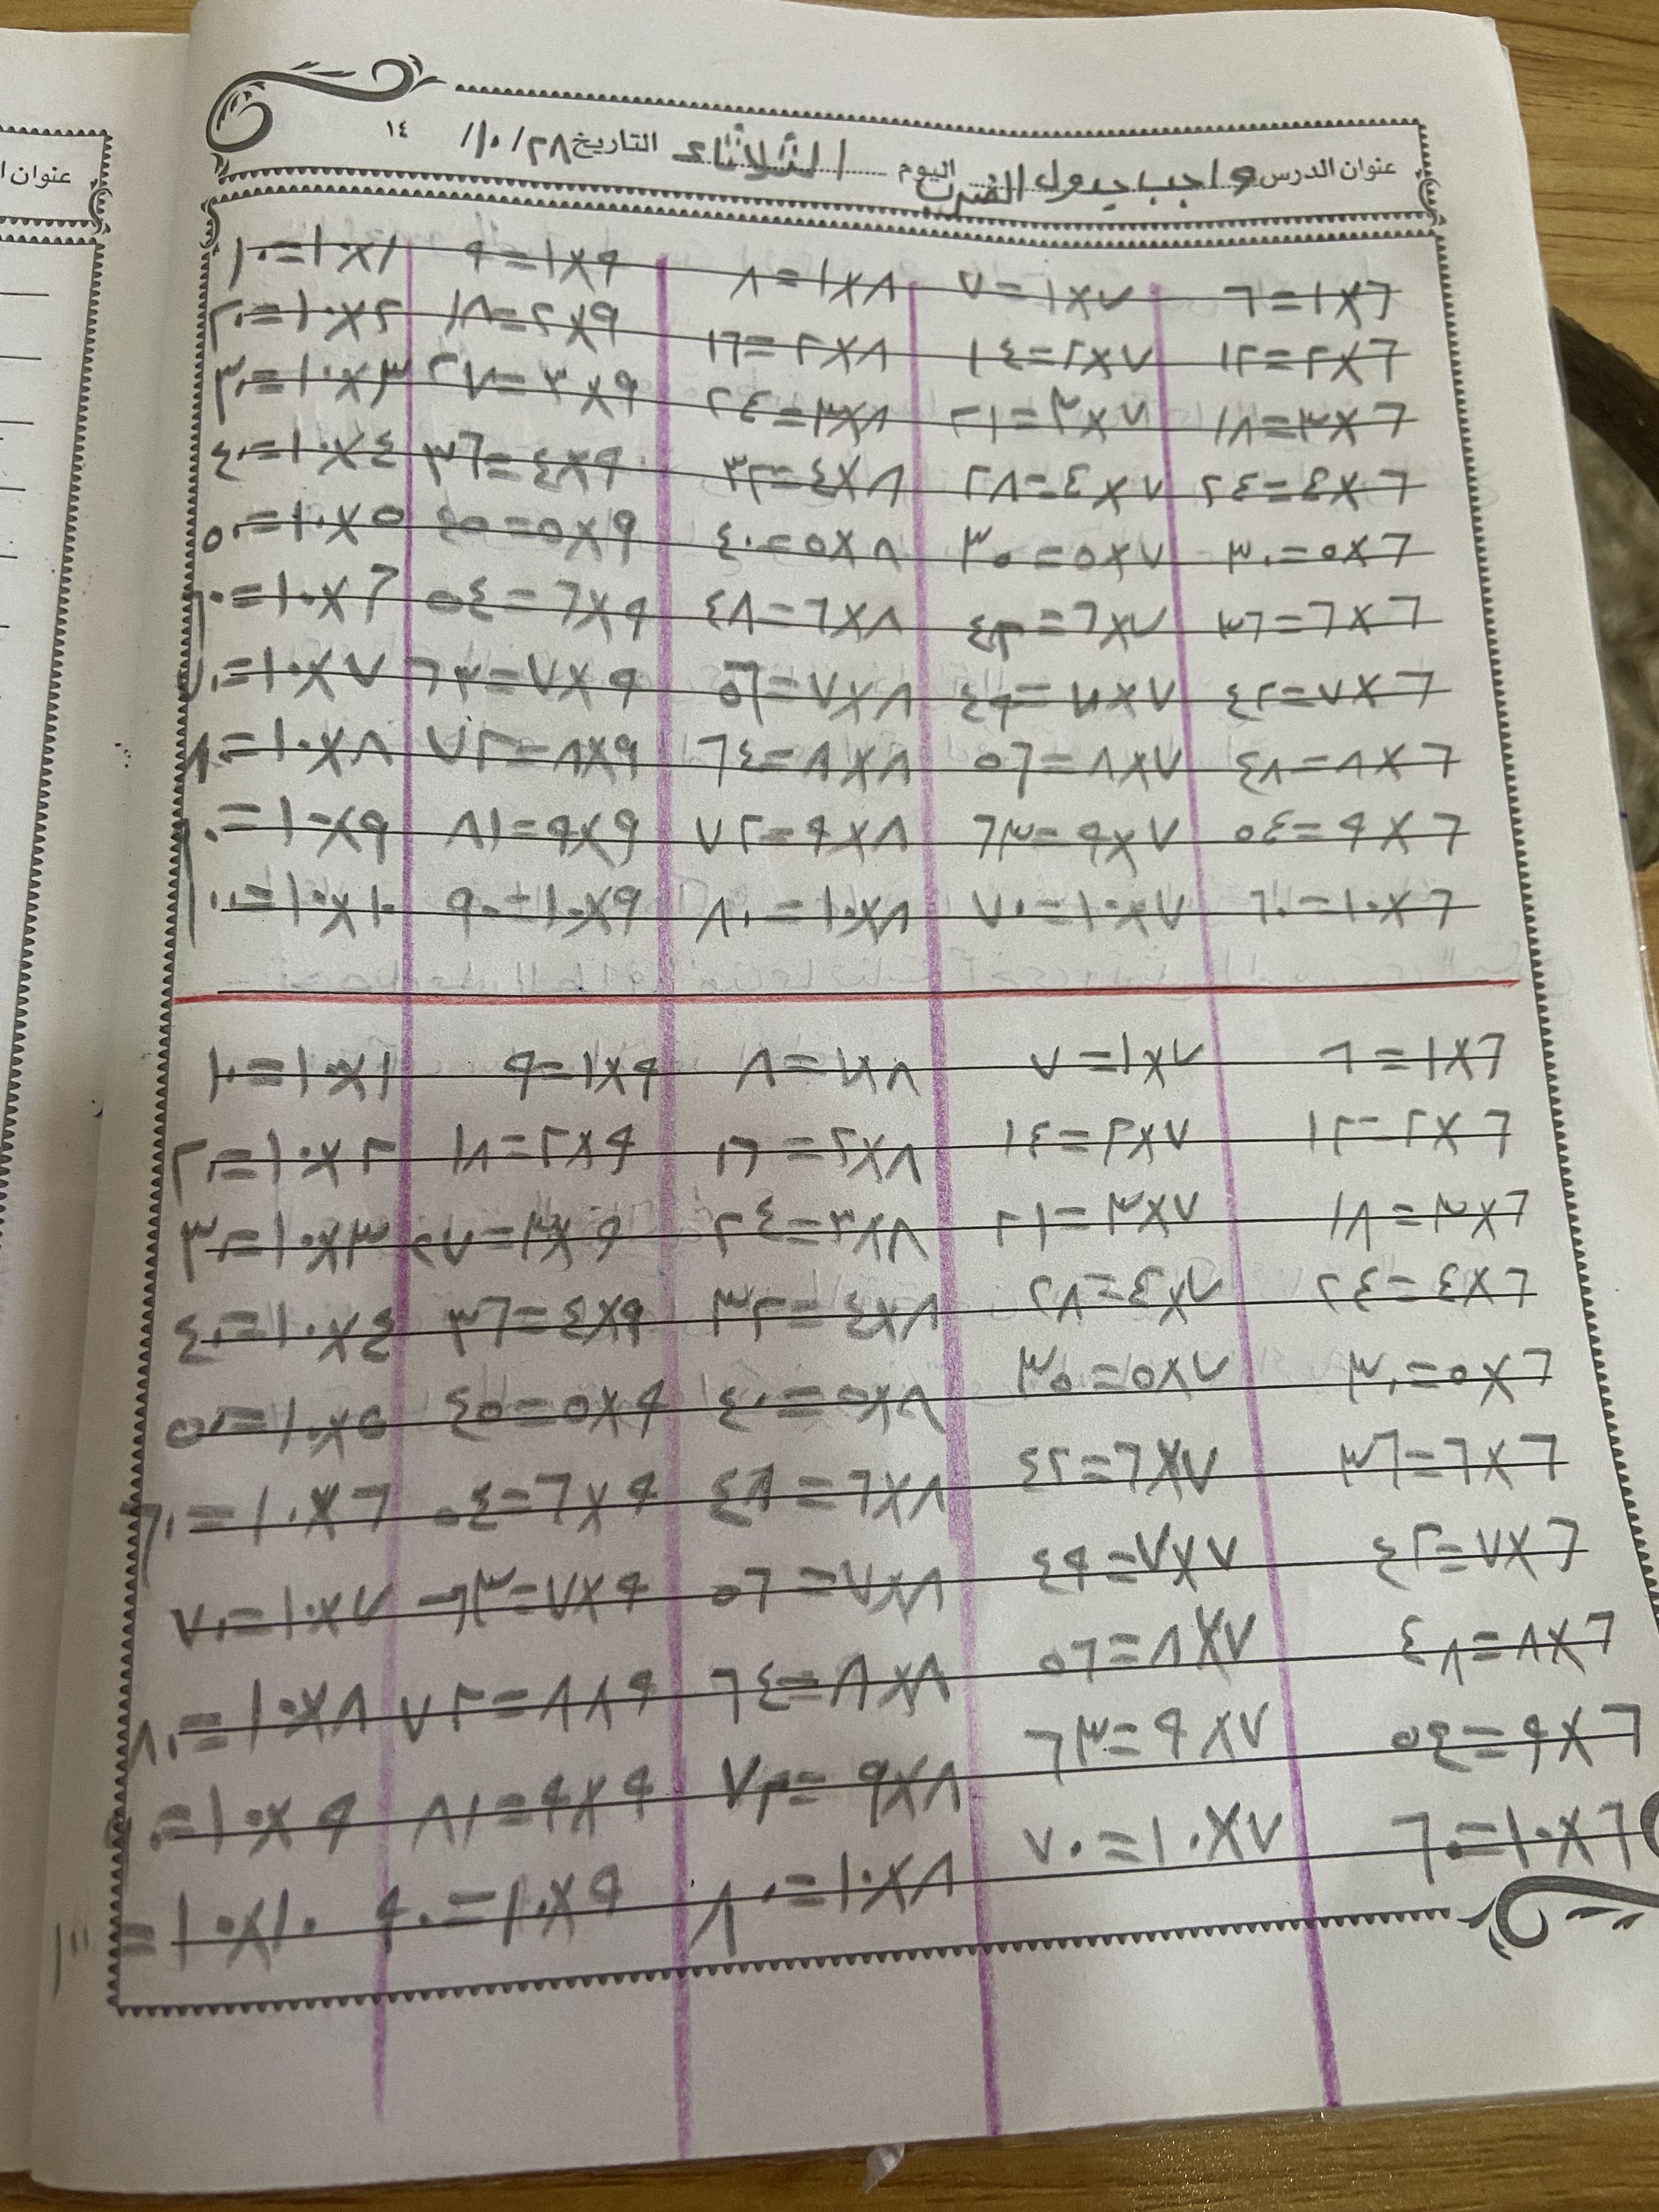 عنوان الدرس واجب جدول الضرب اليوم الثلاثاء التاريخ ٢٨/١٠/ ١٤
٦×١=٦ ٧×١=٧ ٨×١=٨ ٩×١=٩ ١×١٠=١٠
٦×٢=١٢ ٧×٢=١٤ ٨×٢=١٦ ٩×٢=١٨ ٢×١٠=٢٠
٦×٣=١٨ ٧×٣=٢١ ٨×٣=٢٤ ٩×٣=٢٧ ٣×١٠=٣٠
٦×٤=٢٤ ٧×٤=٢٨ ٨×٤=٣٢ ٩×٤=٣٦ ٤×١٠=٤٠
٦×٥=٣٠ ٧×٥=٣٥ ٨×٥=٤٠ ٩×٥=٤٥ ٥×١٠=٥٠
٦×٦=٣٦ ٧×٦=٤٢ ٨×٦=٤٨ ٩×٦=٥٤ ٦×١٠=٦٠
٦×٧=٤٢ ٧×٧=٤٩ ٨×٧=٥٦ ٩×٧=٦٣ ٧×١٠=٧٠
٦×٨=٤٨ ٧×٨=٥٦ ٨×٨=٦٤ ٩×٨=٧٢ ٨×١٠=٨٠
٦×٩=٥٤ ٧×٩=٦٣ ٨×٩=٧٢ ٩×٩=٨١ ٩×١٠=٩٠
٦×١٠=٦٠ ٧×١٠=٧٠ ٨×١٠=٨٠ ٩×١٠=٩٠ ١٠×١٠=١٠٠
٦×١=٦ ٧×١=٧ ٨×١=٨ ٩×١=٩ ١×١٠=١٠
٦×٢=١٢ ٧×٢=١٤ ٨×٢=١٦ ٩×٢=١٨ ٢×١٠=٢٠
٦×٣=١٨ ٧×٣=٢١ ٨×٣=٢٤ ٩×٣=٢٧ ٣×١٠=٣٠
٦×٤=٢٤ ٧×٤=٢٨ ٨×٤=٣٢ ٩×٤=٣٦ ٤×١٠=٤٠
٦×٥=٣٠ ٧×٥=٣٥ ٨×٥=٤٠ ٩×٥=٤٥ ٥×١٠=٥٠
٦×٦=٣٦ ٧×٦=٤٢ ٨×٦=٤٨ ٩×٦=٥٤ ٦×١٠=٦٠
٦×٧=٤٢ ٧×٧=٤٩ ٨×٧=٥٦ ٩×٧=٦٣ ٧×١٠=٧٠
٦×٨=٤٨ ٧×٨=٥٦ ٨×٨=٦٤ ٩×٨=٧٢ ٨×١٠=٨٠
٦×٩=٥٤ ٧×٩=٦٣ ٨×٩=٧٢ ٩×٩=٨١ ٩×١٠=
٦×١٠=٦٠ ٧×١٠=٧٠ ٨×١٠=٨٠ ٩×١٠=٩٠ ١٠×١٠=١٠٠
عنوان ا